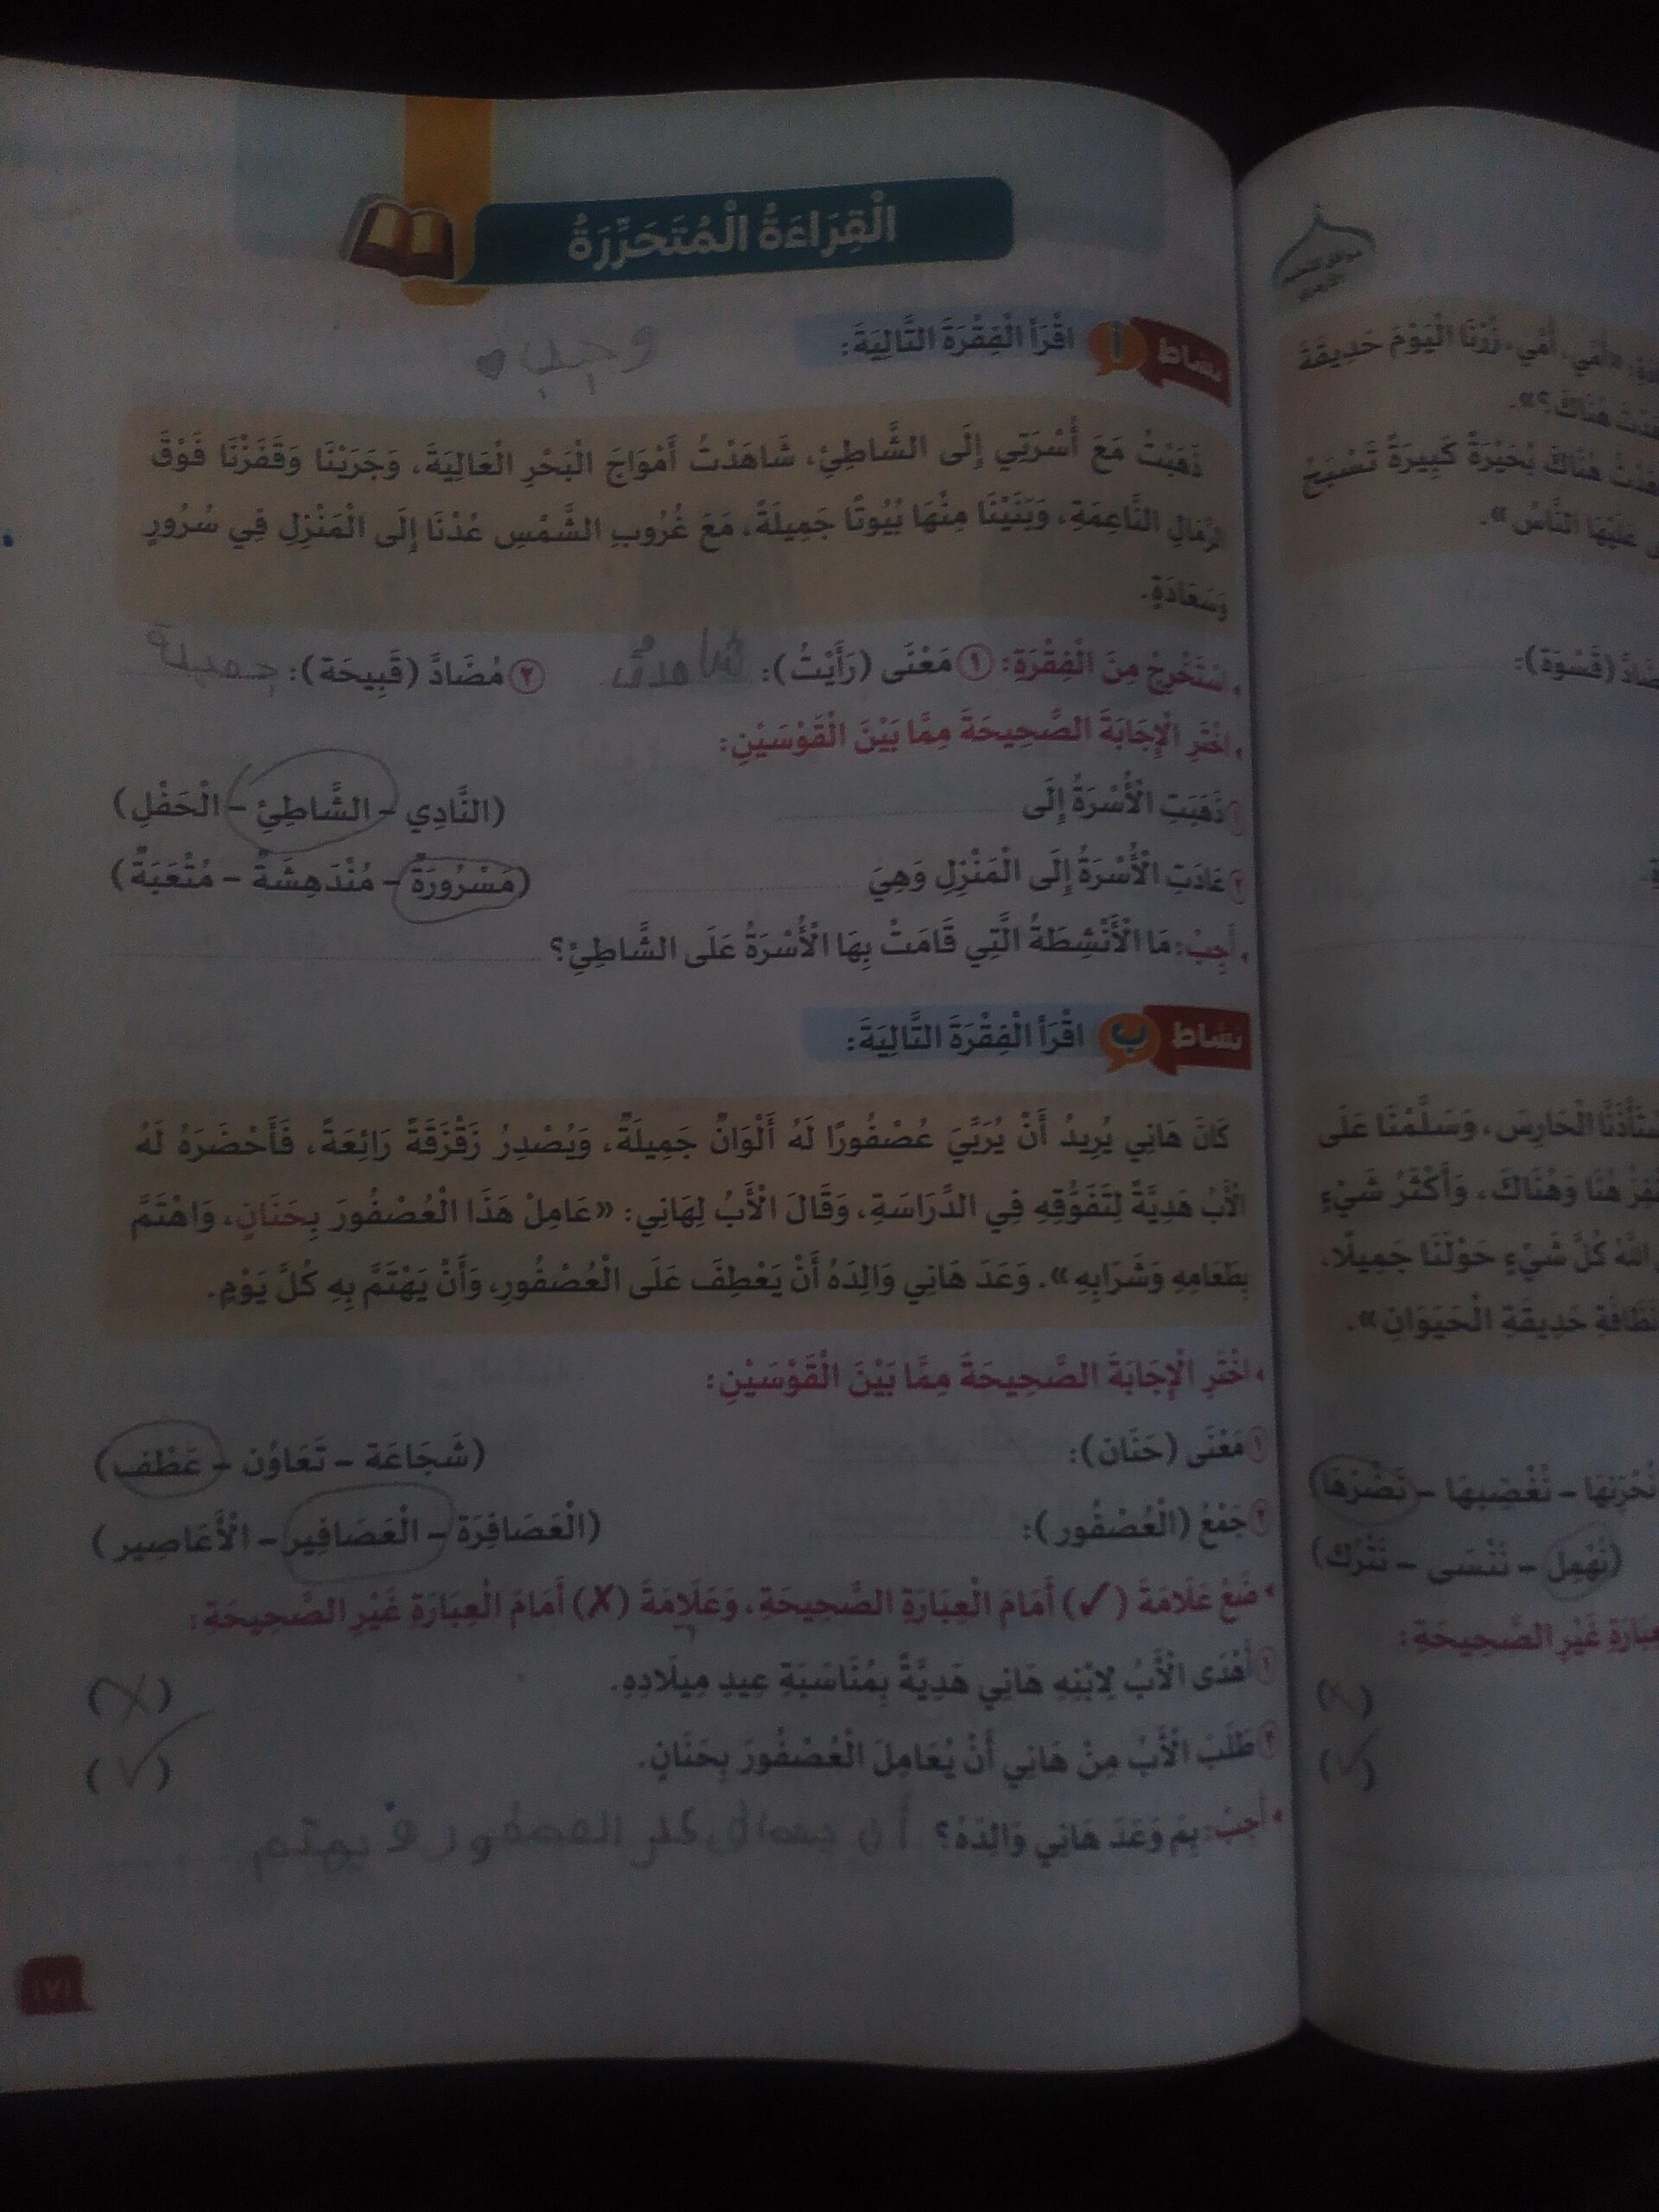 الْقِرَاءَةُ الْمُتَحَرِّرَةُ
نشاط أ اقْرَأِ الْفِقْرَةَ التَّالِيَةَ:
ذَهَبْتُ مَعَ أُسْرَتِي إِلَى الشَّاطِئِ، شَاهَدْتُ أَمْوَاجَ الْبَحْرِ الْعَالِيَةَ، وَجَرَيْنَا وَقَفَزْنَا فَوْقَ
الرِّمَالِ النَّاعِمَةِ، وَبَنَيْنَا مِنْهَا بُيُوتًا جَمِيلَةً، مَعَ غُرُوبِ الشَّمْسِ عُدْنَا إِلَى الْمَنْزِلِ فِي سُرُورٍ
وَسَعَادَةٍ.
اسْتَخْرِجْ مِنَ الْفِقْرَةِ: ١ مَعْنَى (رَأَيْتُ): شاهدتُ ٢ مُضَادَّ (قَبِيحَة): جميلة
اخْتَرِ الْإِجَابَةَ الصَّحِيحَةَ مِمَّا بَيْنَ الْقَوْسَيْنِ:
١ ذَهَبَتِ الْأُسْرَةُ إِلَى (النَّادِي - الشَّاطِئِ - الْحَفْلِ)
٢ عَادَتِ الْأُسْرَةُ إِلَى الْمَنْزِلِ وَهِيَ (مَسْرُورَةٌ - مُنْدَهِشَةٌ - مُتْعَبَةٌ)
أَجِبْ: مَا الْأَنْشِطَةُ الَّتِي قَامَتْ بِهَا الْأُسْرَةُ عَلَى الشَّاطِئِ؟
نشاط ب اقْرَأِ الْفِقْرَةَ التَّالِيَةَ:
كَانَ هَانِي يُرِيدُ أَنْ يُرَبِّيَ عُصْفُورًا لَهُ أَلْوَانٌ جَمِيلَةٌ، وَيُصْدِرُ زَقْزَقَةً رَائِعَةً، فَأَحْضَرَهُ لَهُ
الْأَبُ هَدِيَّةً لِتَفَوُّقِهِ فِي الدِّرَاسَةِ، وَقَالَ الْأَبُ لِهَانِي: «عَامِلْ هَذَا الْعُصْفُورَ بِحَنَانٍ، وَاهْتَمَّ
بِطَعَامِهِ وَشَرَابِهِ». وَعَدَ هَانِي وَالِدَهُ أَنْ يَعْطِفَ عَلَى الْعُصْفُورِ، وَأَنْ يَهْتَمَّ بِهِ كُلَّ يَوْمٍ.
اخْتَرِ الْإِجَابَةَ الصَّحِيحَةَ مِمَّا بَيْنَ الْقَوْسَيْنِ:
١ مَعْنَى (حَنَان): (شَجَاعَة - تَعَاوُن - عَطْف)
٢ جَمْعُ (الْعُصْفُور): (الْعَصَافِرَة - الْعَصَافِير - الْأَعَاصِير)
ضَعْ عَلَامَةَ (✓) أَمَامَ الْعِبَارَةِ الصَّحِيحَةِ، وَعَلَامَةَ (✗) أَمَامَ الْعِبَارَةِ غَيْرِ الصَّحِيحَةِ:
١ أَهْدَى الْأَبُ لِابْنِهِ هَانِي هَدِيَّةً بِمُنَاسَبَةِ عِيدِ مِيلَادِهِ. (✗)
٢ طَلَبَ الْأَبُ مِنْ هَانِي أَنْ يُعَامِلَ الْعُصْفُورَ بِحَنَانٍ. (✓)
أَجِبْ: بِمَ وَعَدَ هَانِي وَالِدَهُ؟ أن العصفور و يهتم
أُمِّي، أُمِّي، زُرْنَا الْيَوْمَ حَدِيقَةَ
هُنَاكَ؟».
هُنَاكَ بُحَيْرَةً كَبِيرَةً تَسْبَحُ
عَلَيْهَا النَّاسُ».
(قَسْوَة):
الْحَارِسَ، وَسَلَّمْنَا عَلَى
هُنَا وَهُنَاكَ، وَأَكْثَرُ شَيْءٍ
اللهُ كُلَّ شَيْءٍ حَوْلَنَا جَمِيلًا،
حَدِيقَةِ الْحَيَوَانِ».
- نُغْضِبهَا - نَضُرّهَا)
(نُهْمِل - نَنْسَى - نَتْرُك)
غَيْرِ الصَّحِيحَةِ: